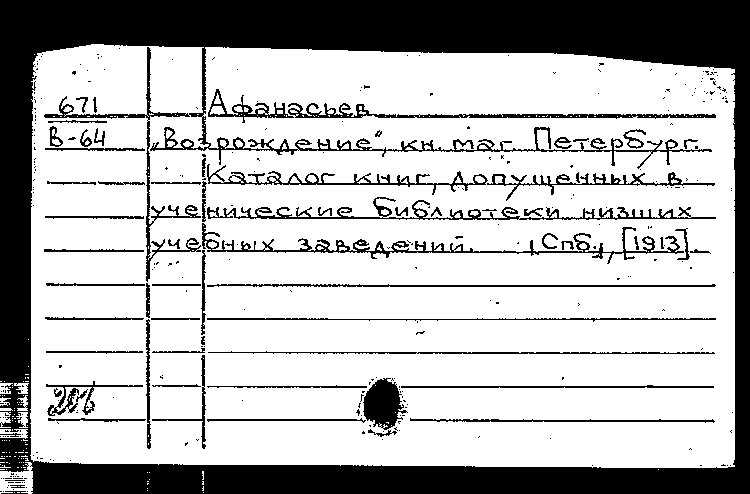 671 Афанасьев
В-64 „Возрождение“, кн. маг. Петербург.
Каталог книг, допущенных в
ученические библиотеки низших
учебных заведений. [Спб.], [1913].